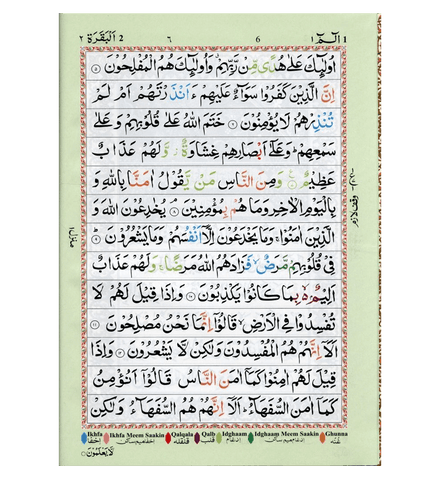 ٢ اَلْبَقَرَة 2 ٦ 6 الٓمّٓ ١ 1
اُولٰٓئِكَ عَلٰى هُدًى مِّنْ رَّبِّهِمْ وَاُولٰٓئِكَ هُمُ الْمُفْلِحُوْنَ ۝
اِنَّ الَّذِيْنَ كَفَرُوْا سَوَآءٌ عَلَيْهِمْ ءَاَنْذَرْتَهُمْ اَمْ لَمْ
تُنْذِرْهُمْ لَا يُؤْمِنُوْنَ ۝ خَتَمَ اللّٰهُ عَلٰى قُلُوْبِهِمْ وَعَلٰى
سَمْعِهِمْ ؕ وَعَلٰٓى اَبْصَارِهِمْ غِشَاوَةٌ ؗ وَّلَهُمْ عَذَابٌ
عَظِيْمٌ ۝ وَمِنَ النَّاسِ مَنْ يَّقُوْلُ اٰمَنَّا بِاللّٰهِ وَ
بِالْيَوْمِ الْاٰخِرِ وَمَا هُمْ بِمُؤْمِنِيْنَ ۝ يُخٰدِعُوْنَ اللّٰهَ وَ
الَّذِيْنَ اٰمَنُوْا ۚ وَمَا يَخْدَعُوْنَ اِلَّاۤ اَنْفُسَهُمْ وَمَا يَشْعُرُوْنَ ۝
فِيْ قُلُوْبِهِمْ مَّرَضٌ ۙ فَزَادَهُمُ اللّٰهُ مَرَضًا ۚ وَلَهُمْ عَذَابٌ
اَلِيْمٌۢ ۙ بِمَا كَانُوْا يَكْذِبُوْنَ ۝ وَاِذَا قِيْلَ لَهُمْ لَا
تُفْسِدُوْا فِي الْاَرْضِ ۙ قَالُوْۤا اِنَّمَا نَحْنُ مُصْلِحُوْنَ ۝١١
اَلَاۤ اِنَّهُمْ هُمُ الْمُفْسِدُوْنَ وَلٰكِنْ لَّا يَشْعُرُوْنَ ۝ وَاِذَا
قِيْلَ لَهُمْ اٰمِنُوْا كَمَاۤ اٰمَنَ النَّاسُ قَالُوْۤا اَنُؤْمِنُ
كَمَاۤ اٰمَنَ السُّفَهَآءُ ؕ اَلَاۤ اِنَّهُمْ هُمُ السُّفَهَآءُ وَلٰكِنْ
لَّا يَعْلَمُوْنَ ۝
وقف لازم
منزل ١
Ikhfa Ikhfa Meem Saakin Qalqala Qalb Idghaam Idghaam Meem Saakin Ghunna
اخفا اخفا میم ساکن قلقله قلب ادغام ادغام میم ساکن غنه